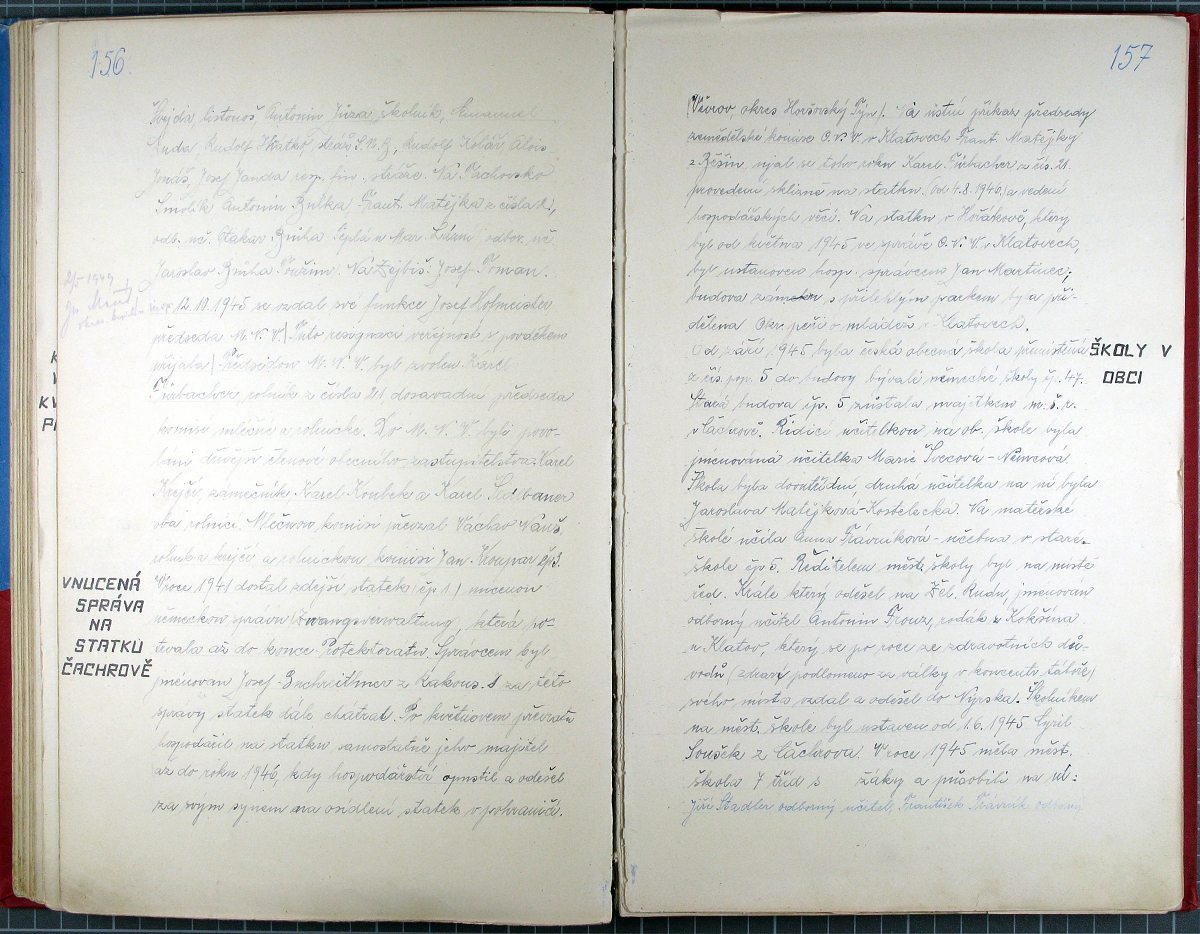 156
Hejda listonoš, Antonín Jůza školník, Emanuel
Rudolf stráž S.N.B, Rudolf Kolář Alois
Jonáš, Josef Janda resp. fin. stráže. Na Tachovsko
Smolík Antonín Brůha Frant. Matějka z čísla
odb. uč. Otakar Brůha Teplá u Mar. Lázní odbor. uč.
Jaroslav Brůha Toužim. Na Josef Toman.
1949
12.10.1945 se vzdal své funkce Josef Hofmeister
předseda M.N.V. Tuto resignaci veřejnost s povděkem
přijala Předsedou M.N.V. byl zvolen Karel
rolník z čísla 21 dosavadní předseda
komise mléčné a rolnické. Do M.N.V. byli povo-
láni dřívější členové obecního zastupitelstva: Karel
Krejčí, zámečník Karel Koubek a Karel
oba rolníci. Mléčnou komisi převzal Václav
rolník a krejčí a rolnickou komisi Jan čp3.
VNUCENÁ
SPRÁVA
NA
STATKU
ČACHROVĚ
V roce 1941 dostal zdejší statek (čp 1.) nucenou
německou správu (Zwangsverwaltung, která po-
trvala až do konce Protektorátu. Správcem byl
jmenován Josef z Rakous. a za této
správy statek dále chátral. Po květnovém převratu
hospodařil na statku samostatně jeho majitel
až do roku 1946, kdy hospodářství opustil a odešel
za svým synem na osídlení statek v pohraničí.
157
(Věvrov, okres Horšovský Týn). Na ústní příkaz předsedy
zemědělské komise O.N.V. v Klatovech Frant. Matějky
z Běšin, ujal se toho roku Karel z čís. 21.
provedení sklizně na statku (Od 4.8.1946) a vedení
hospodářských věcí. Na statku v který
byl od května 1945 ve správě O.N.V. v Klatovech,
byl ustanoven hosp. správcem Jan Martinec;
budova zámku s přilehlým parkem byla při-
dělena Okr. péči o mládež v Klatovech.
ŠKOLY V
OBCI
Od září 1945 byla česká obecná škola přemístěna
z čís. pop. 5 do budovy bývalé německé školy čp. 47.
Stará budova čp. 5 zůstala majetkem m. š. r.
v Čáchrově. Řídící učitelkou na ob. škole byla
jmenována učitelka Marie Švecová-Němcová
Škola byla dvoutřídní druhá učitelka na ní byla
Jaroslava Matějková-Kostelecká. Na mateřské
škole učila Anna Trávníková-učebna v staré
škole čp 5. Ředitelem měšť. školy byl na místě
řed. Krále který odešel na Žel. Rudu, jmenován
odborný učitel Antonín Frouz, rodák z Kokšína
u Klatov, který se po roce ze zdravotních dů-
vodů (zdraví podlomeno za války v koncentr. táboře)
svého místa vzdal a odešel do Nýrska. Školníkem
na měšť. škole byl ustaven od 1.6.1945 Cyril
Soušek z Čáchrova. V roce 1945 měla měšť.
škola 7 tříd s žáky a působili na ní:
Jiří Stadler odborný učitel, František Trávník odborný